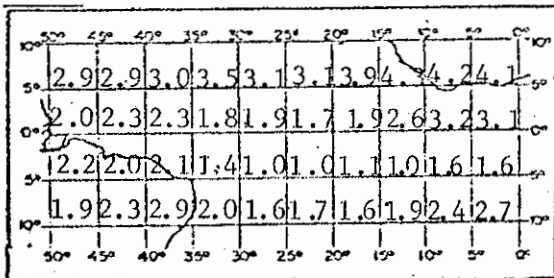 50° 45° 40° 35° 30° 25° 20° 15° 10° 5° 0°
10° 10°
2.9 2.9 3.0 3.5 3.1 3.1 3.9 4.2 4.1
5° 5°
2.0 2.3 2.3 1.8 1.9 1.7 1.9 2.6 3.2 3.1
0° 0°
2.2 2.0 2.1 1.4 1.0 1.0 1.1 1.0 1.6 1.6
5° 5°
1.9 2.3 2.9 2.0 1.6 1.7 1.6 1.9 2.4 2.7
10° 10°
50° 45° 40° 35° 30° 25° 20° 15° 10° 5° 0°